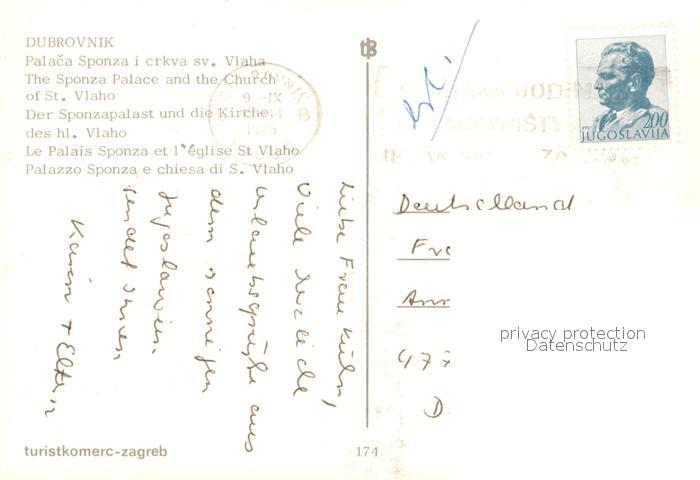 DUBROVNIK
Palača Sponza i crkva sv. Vlaha
The Sponza Palace and the Church
of St. Vlaho
Der Sponzapalast und die Kirche
des hl. Vlaho
Le Palais Sponza et l'église St Vlaho
Palazzo Sponza e chiesa di S. Vlaho
9 -IX
1975
2,00
JUGOSLAVIJA
Liebe Frau Kühn,
Viele herzliche
Urlaubsgrüße aus
dem sonnigen
Jugoslawien
sendet Ihnen
Karin + Eltern
Deutschland
Fr
Ann
477
D
privacy protection
Datenschutz
turistkomerc-zagreb
174